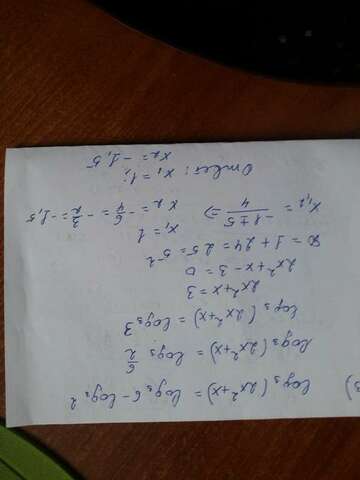 3) log₃(2x²+x) = log₃6 - log₃2
log₃(2x²+x) = log₃ 6/2
log₃(2x²+x) = log₃3
2x²+x = 3
2x²+x-3 = 0
D = 1+24 = 25 = 5²
x₁,₂ = (-1±5)/4 ⇒ x₁ = 1
x₂ = -6/4 = -3/2 = -1,5
Ответ: x₁ = 1;
x₂ = -1,5